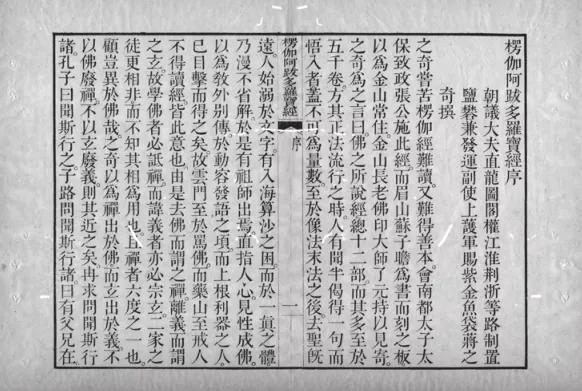 楞伽阿跋多羅寶經序
朝議大夫直龍圖閣權江淮荆浙等路制置
鹽礬兼發運副使上護軍賜紫金魚袋蔣之
奇撰
之奇嘗苦楞伽經難讀又難得善本會南都太子太
保致政張公施此經而眉山蘇子瞻為書而刻之板
以為金山常住金山長老佛印大師了元持以見寄
之奇為之言曰佛之所說經總十二部而其多至於
五千卷方其正法流行之時人有聞半偈得一句而
悟入者蓋不可為量數至於像法末法之後去聖旣
楞伽阿跋多羅寶經
序
一
遠人始溺於文字有入海算沙之困而於一真之體
乃漫不省解於是有祖師出焉直指人心見性成佛
以為敎外別傳於動容發語之頃而上根利器之人
已目擊而得之矣故雲門至於罵佛而藥山至戒人
不得讀經皆此意也由是去佛而謂之禪離義而謂
之玄故學佛者必詆禪而諱義者亦必宗玄二家之
徒更相非而不知其相為用也且禪者六度之一也
顧豈異於佛哉之奇以為禪出於佛而玄出於義不
以佛廢禪不以玄廢義則其近之矣冉求問聞斯行
諸孔子曰聞斯行之子路問聞斯行諸曰有父兄在